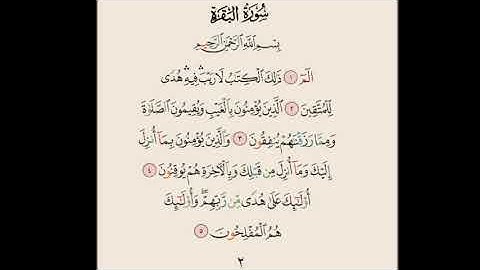 سُورَةُ الْبَقَرَةِ
بِسْمِ اللَّهِ الرَّحْمَٰنِ الرَّحِيمِ
الٓمٓ ١ ذَٰلِكَ ٱلْكِتَٰبُ لَا رَيْبَ ۛ فِيهِ ۛ هُدًى
لِّلْمُتَّقِينَ ٢ ٱلَّذِينَ يُؤْمِنُونَ بِٱلْغَيْبِ وَيُقِيمُونَ ٱلصَّلَوٰةَ
وَمِمَّا رَزَقْنَٰهُمْ يُنفِقُونَ ٣ وَٱلَّذِينَ يُؤْمِنُونَ بِمَآ أُنزِلَ
إِلَيْكَ وَمَآ أُنزِلَ مِن قَبْلِكَ وَبِٱلْءَاخِرَةِ هُمْ يُوقِنُونَ ٤
أُو۟لَٰٓئِكَ عَلَىٰ هُدًى مِّن رَّبِّهِمْ ۖ وَأُو۟لَٰٓئِكَ
هُمُ ٱلْمُفْلِحُونَ ٥
٢